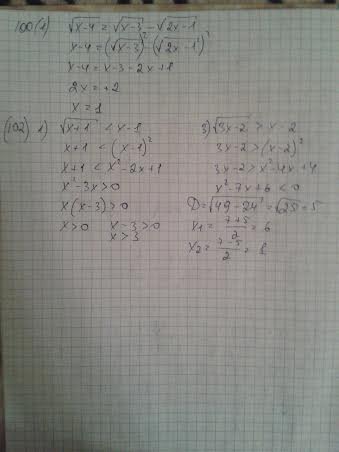 100(1) √x-4 = √x-3 - √2x-1
x-4 = (√x-3)² - (√2x-1)²
x-4 = x-3-2x+1
2x = +2
x = 1
(102) 1) √x+1 < x-1
x+1 < (x-1)²
x+1 < x²-2x+1
x²-3x>0
x(x-3)>0
x>0 x-3>0
x>3
3) √3x-2 > x-2
3x-2>(x-2)²
3x-2>x²-4x+4
x²-7x+6<0
D=√49-24=√25=5
x₁= 7+5/2 = 6
x₂= 7-5/2 = 1